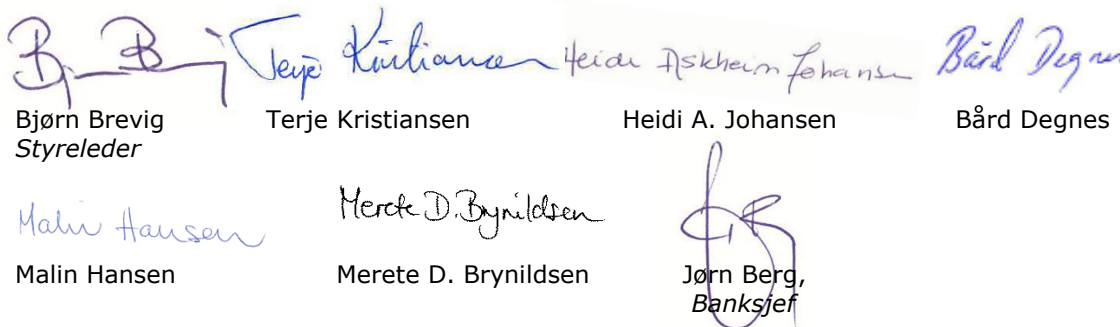 Terje Kristiansen Heidi Askheim Johansen Bård Degnes
Bjørn Brevig Terje Kristiansen Heidi A. Johansen Bård Degnes
Styreleder
Malin Hansen Merete D. Brynildsen
Malin Hansen Merete D. Brynildsen Jørn Berg,
Banksjef